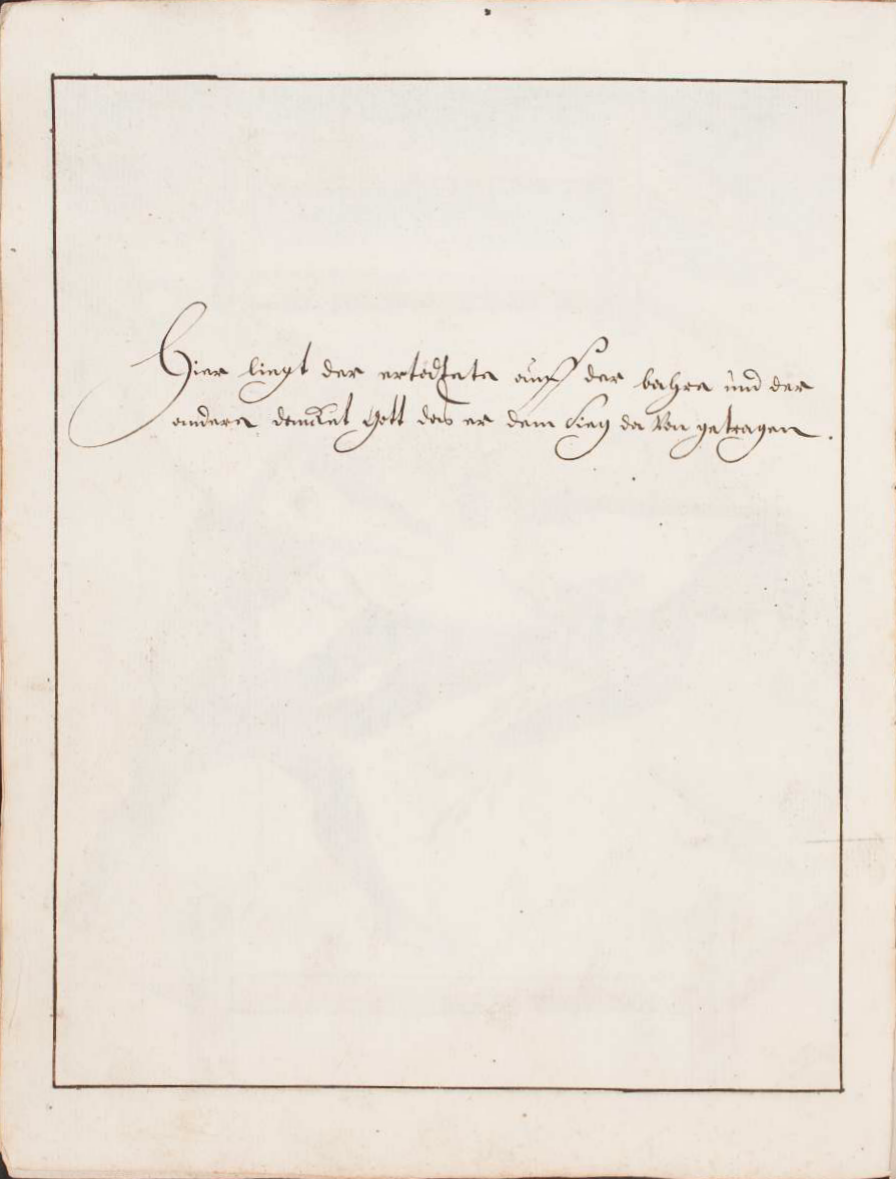 Hier liegt der ertödtete auff der bahre und der
andere dancket Gott das er dem Sieg da Von getragen.